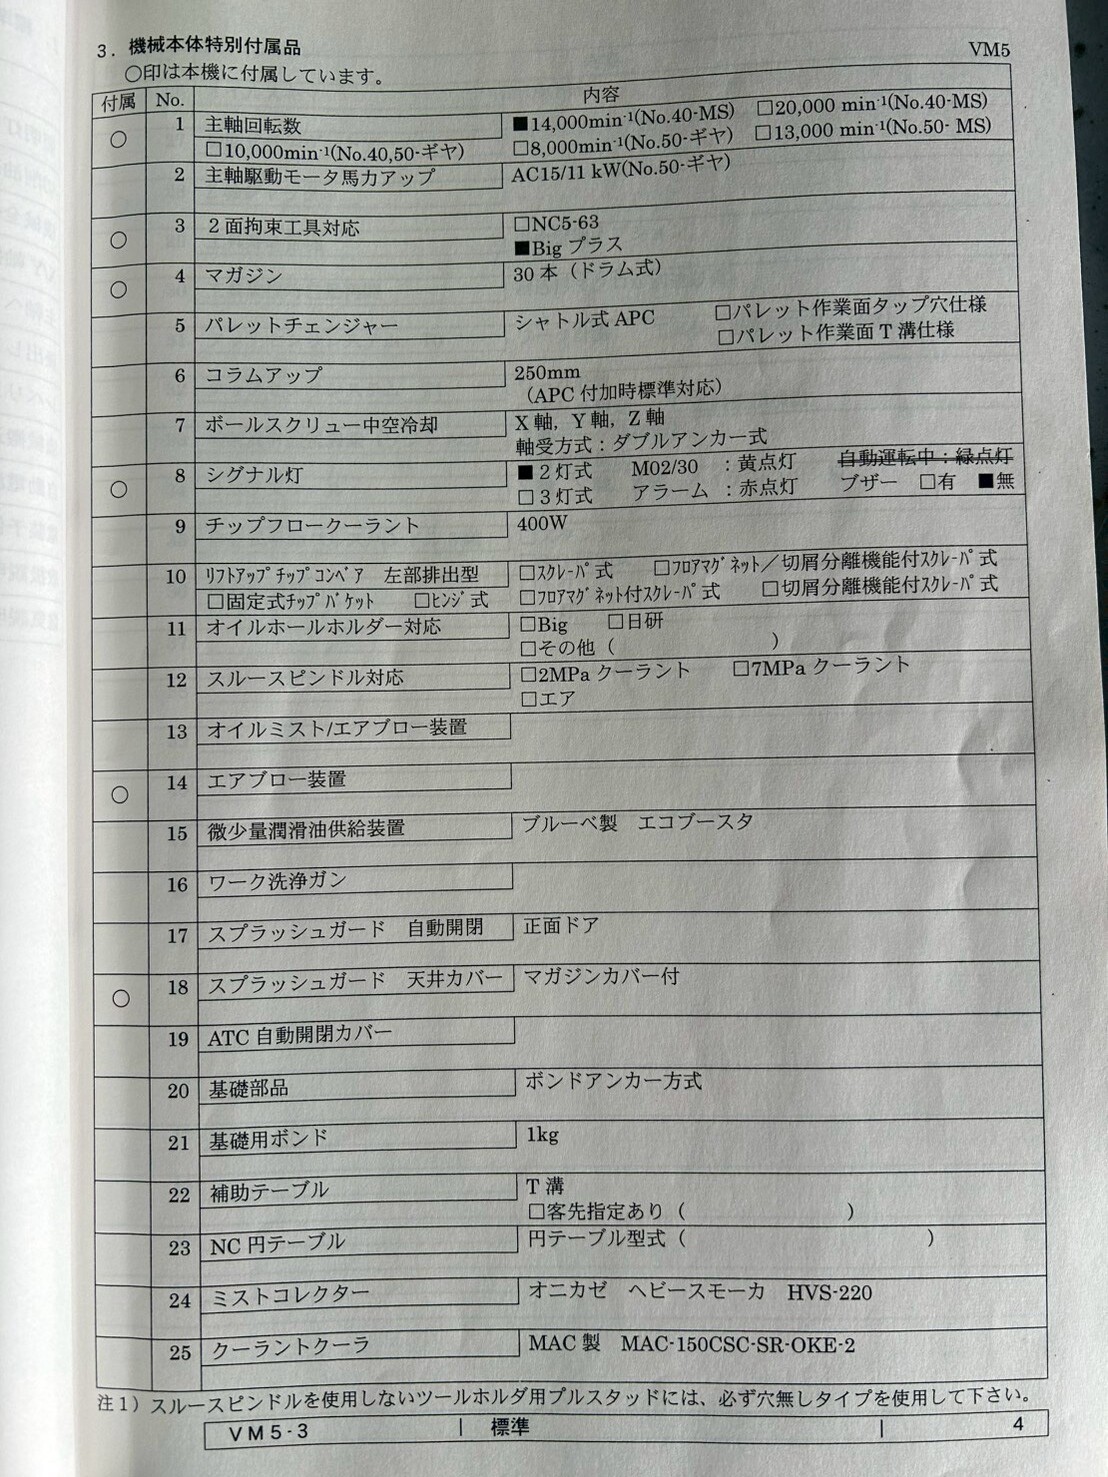 3．機械本体特別付属品
VM5
○印は本機に付属しています。
付属 No. 内容
○ 1 主軸回転数 ■14,000min⁻¹(No.40-MS) □20,000 min⁻¹(No.40-MS)
□10,000min⁻¹(No.40,50-ギヤ) □8,000min⁻¹(No.50-ギヤ) □13,000 min⁻¹(No.50- MS)
2 主軸駆動モータ馬力アップ AC15/11 kW(No.50-ギヤ)
○ 3 ２面拘束工具対応 □NC5-63
■Big プラス
○ 4 マガジン 30 本（ドラム式）
5 パレットチェンジャー シャトル式 APC □パレット作業面タップ穴仕様
□パレット作業面 T 溝仕様
6 コラムアップ 250mm
（APC 付加時標準対応）
7 ボールスクリュー中空冷却 X 軸，Y 軸，Z 軸
軸受方式：ダブルアンカー式
○ 8 シグナル灯 ■２灯式 M02/30 ：黄点灯 自動運転中：緑点灯
□３灯式 アラーム ：赤点灯 ブザー □有 ■無
9 チップフロークーラント 400W
10 ﾘﾌﾄｱｯﾌﾟﾁｯﾌﾟｺﾝﾍﾞｱ 左部排出型 □ｽｸﾚｰﾊﾟ式 □ﾌﾛｱﾏｸﾞﾈｯﾄ／切屑分離機能付ｽｸﾚｰﾊﾟ式
□固定式ﾁｯﾌﾟﾊﾞｹｯﾄ □ﾋﾝｼﾞ式 □ﾌﾛｱﾏｸﾞﾈｯﾄ付ｽｸﾚｰﾊﾟ式 □切屑分離機能付ｽｸﾚｰﾊﾟ式
11 オイルホールホルダー対応 □Big □日研
□その他（ ）
12 スルースピンドル対応 □2MPa クーラント □7MPa クーラント
□エア
13 オイルミスト/エアブロー装置
○ 14 エアブロー装置
15 微少量潤滑油供給装置 ブルーベ製 エコブースタ
16 ワーク洗浄ガン
17 スプラッシュガード 自動開閉 正面ドア
○ 18 スプラッシュガード 天井カバー マガジンカバー付
19 ATC 自動開閉カバー
20 基礎部品 ボンドアンカー方式
21 基礎用ボンド 1kg
22 補助テーブル T 溝
□客先指定あり（ ）
23 NC 円テーブル 円テーブル型式（ ）
24 ミストコレクター オニカゼ ヘビースモーカ HVS-220
25 クーラントクーラ MAC 製 MAC-150CSC-SR-OKE-2
注１）スルースピンドルを使用しないツールホルダ用プルスタッドには、必ず穴無しタイプを使用して下さい。
ＶＭ５-３ 標準 4